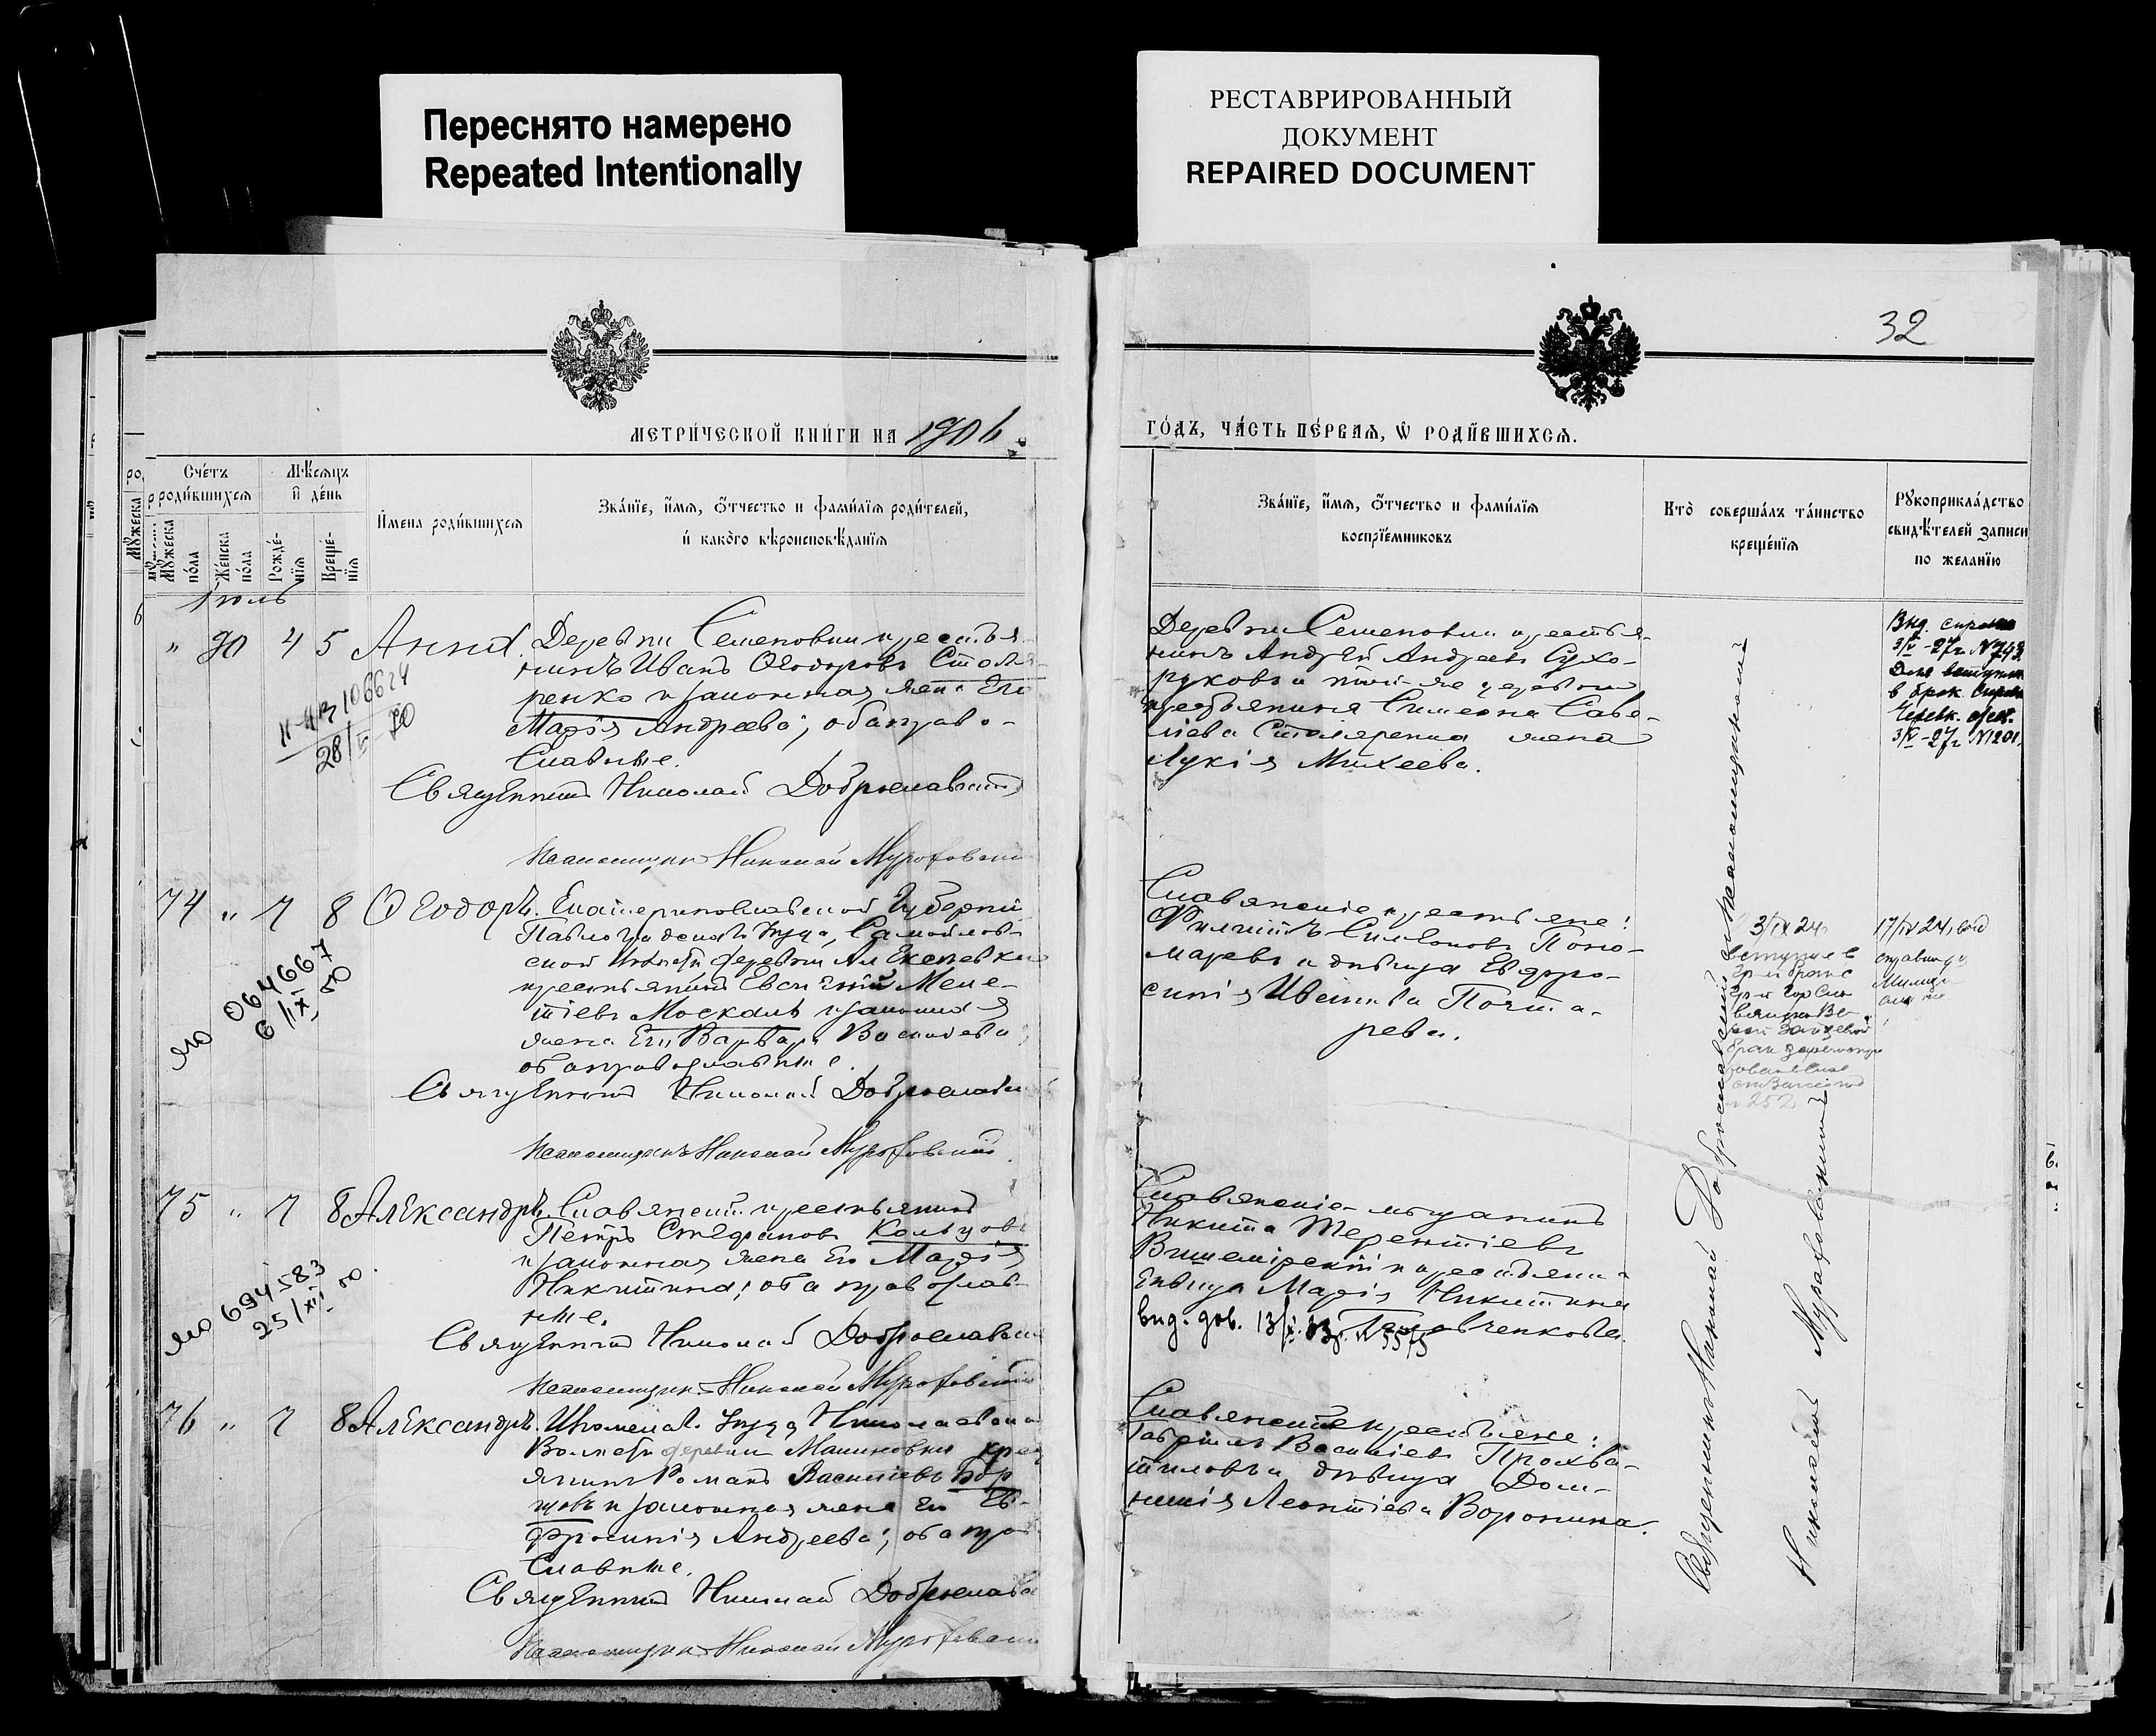 Переснято намерено
Repeated Intentionally
РЕСТАВРИРОВАННЫЙ
ДОКУМЕНТ
REPAIRED DOCUMENT
32
МЕТРИ́ЧЕСКОЙ КНИ́ГИ НА 1906
ГО́ДЪ, ЧА́СТЬ ПЕ́РВАЯ, Ѡ РОДИ́ВШИХСЯ.
Сче́тъ
роди́вшихся
Му́жеска
по́ла
Же́нска
по́ла
Мѣ́сяцъ
и҆ де́нь
Рожде́-
нїя
Креще́-
нїя
И҆мена роди́вшихся
Зва́нїе, и҆́мя, ѻ҆́тчество и фами́лїя роди́телей,
и҆ како́го вѣроисповѣ́данїя
Зва́нїе, и҆́мя, ѻ҆́тчество и фами́лїя
воспрїе́мниковъ
Кто̀ соверша́лъ та́инство
креще́нїя
Рꙋкоприкла́дство
свидѣ́телей записи
по жела́нїю
Іюль
" 90 4 5 Анна. Деревни Семеновки крестья-
нинъ Иванъ Ѳеодоровъ Столя-
ренко и законная жена Его
Марія Андреева; оба право-
славные.
Священникъ Николай Доброславскій
Псаломщикъ Николай Мураховскій
Деревни Семеновки крестья-
нинъ Андрей Андреевъ Сухо-
руковъ и той-же деревни
крестьянина Симеона Саве-
лієва Столяренка жена
Лукія Михеева.
Выд. справка
3/V-27г. N743
Для вступл.
в брак.
3/V-27г. N1201.
106624
28/V 70
74 " 7 8 Ѳеодоръ. Екатеринославской Губерніи
Павлоградскаго Уѣзда, Самойлов-
ской Волости деревни Алексѣевки
крестьянинъ Евгеній Меле-
тіевъ Москаль и законная
жена Его Варвара Васильева;
оба православные.
Священникъ Николай Доброславскій
Псаломщикъ Николай Мураховскій
Славянскіе крестьяне:
Филиппъ Симеоновъ Поно-
маревъ и дѣвица Евфро-
синія Иванова Почта-
рева.
3/IX 24
вступил в
17/IV 24, выд
справка
яю 064667
6/IX 50
75 " 7 8 Александръ. Славянскій крестьянинъ
Петръ Стефановъ Кольцовъ
и законная жена Его Марія
Никитина; оба православ-
ные.
Священникъ Николай Доброславскій
Псаломщикъ Николай Мураховскій
Славянскіе мѣщанинъ
Никита Терентіевъ
Вишемірскій и крестьянка
дѣвица Марія Никитина
яю 694583
25/XII 50.
76 " 7 8 Александръ. Изюмскаго Уѣзда Николаевской
Волости деревни Машковки крест
янинъ Романъ Васильевъ Бор
щовъ и законная жена Его Ев-
фросинія Андреева; оба пра
славные.
Священникъ Николай Доброславскій
Псаломщикъ Николай Мураховскій
Славянскіе крестьяне:
Гавріилъ Васильевъ Прохва-
тиловъ и дѣвица Дом-
никія Леонтіева Воронина.
Священникъ Николай Доброславскій